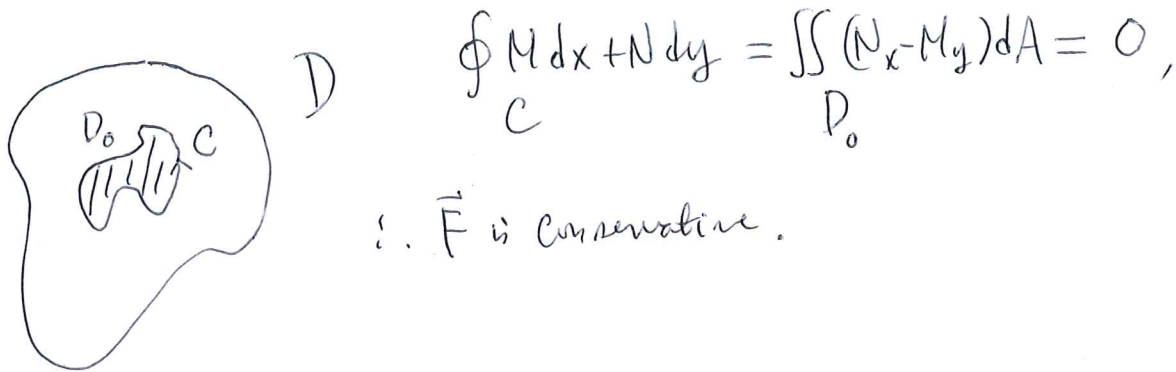 D
D₀
C
∮_C M dx + N dy = ∬_{D₀} (N_x - M_y) dA = 0,
∴ F⃗ is conservative.